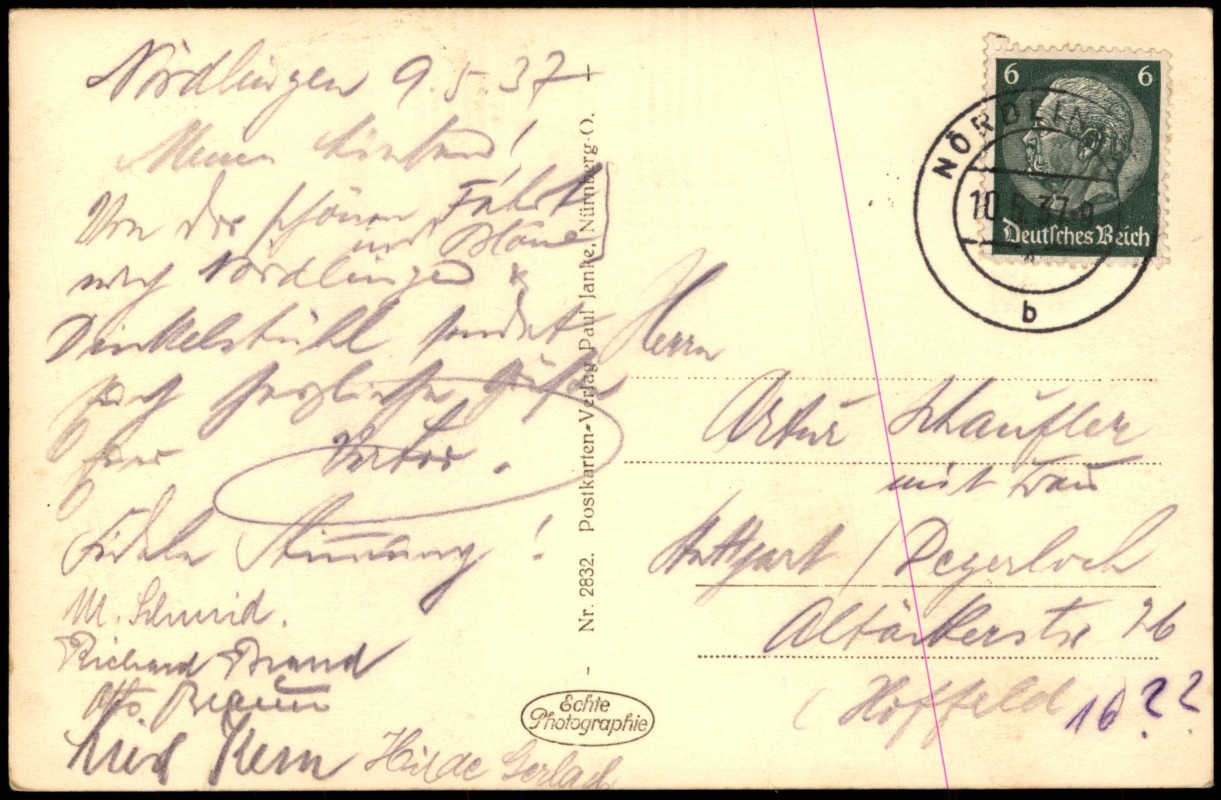 Nördlingen 9.5.37
Meine Lieben!
Von der schönen Fahrt
und
nach Nördlingen &
Dinkelsbühl sendet
Euch herzliche Grüße
Euer Vater.
Fidele Stimmung!
M. Schmid.
Richard Brand
Otto Braun
Kern Hilde Gerlach
Nr. 2832. Postkarten-Verlag Paul Janke, Nürnberg-O.
Echte
Photographie
6 6
Deutsches Reich
NÖRDLINGEN
10.5.37
b
Herrn
Artur Schaufler
mit Frau
Stuttgart / Degerloch
Altäckerstr 26
(Hoffeld 16??